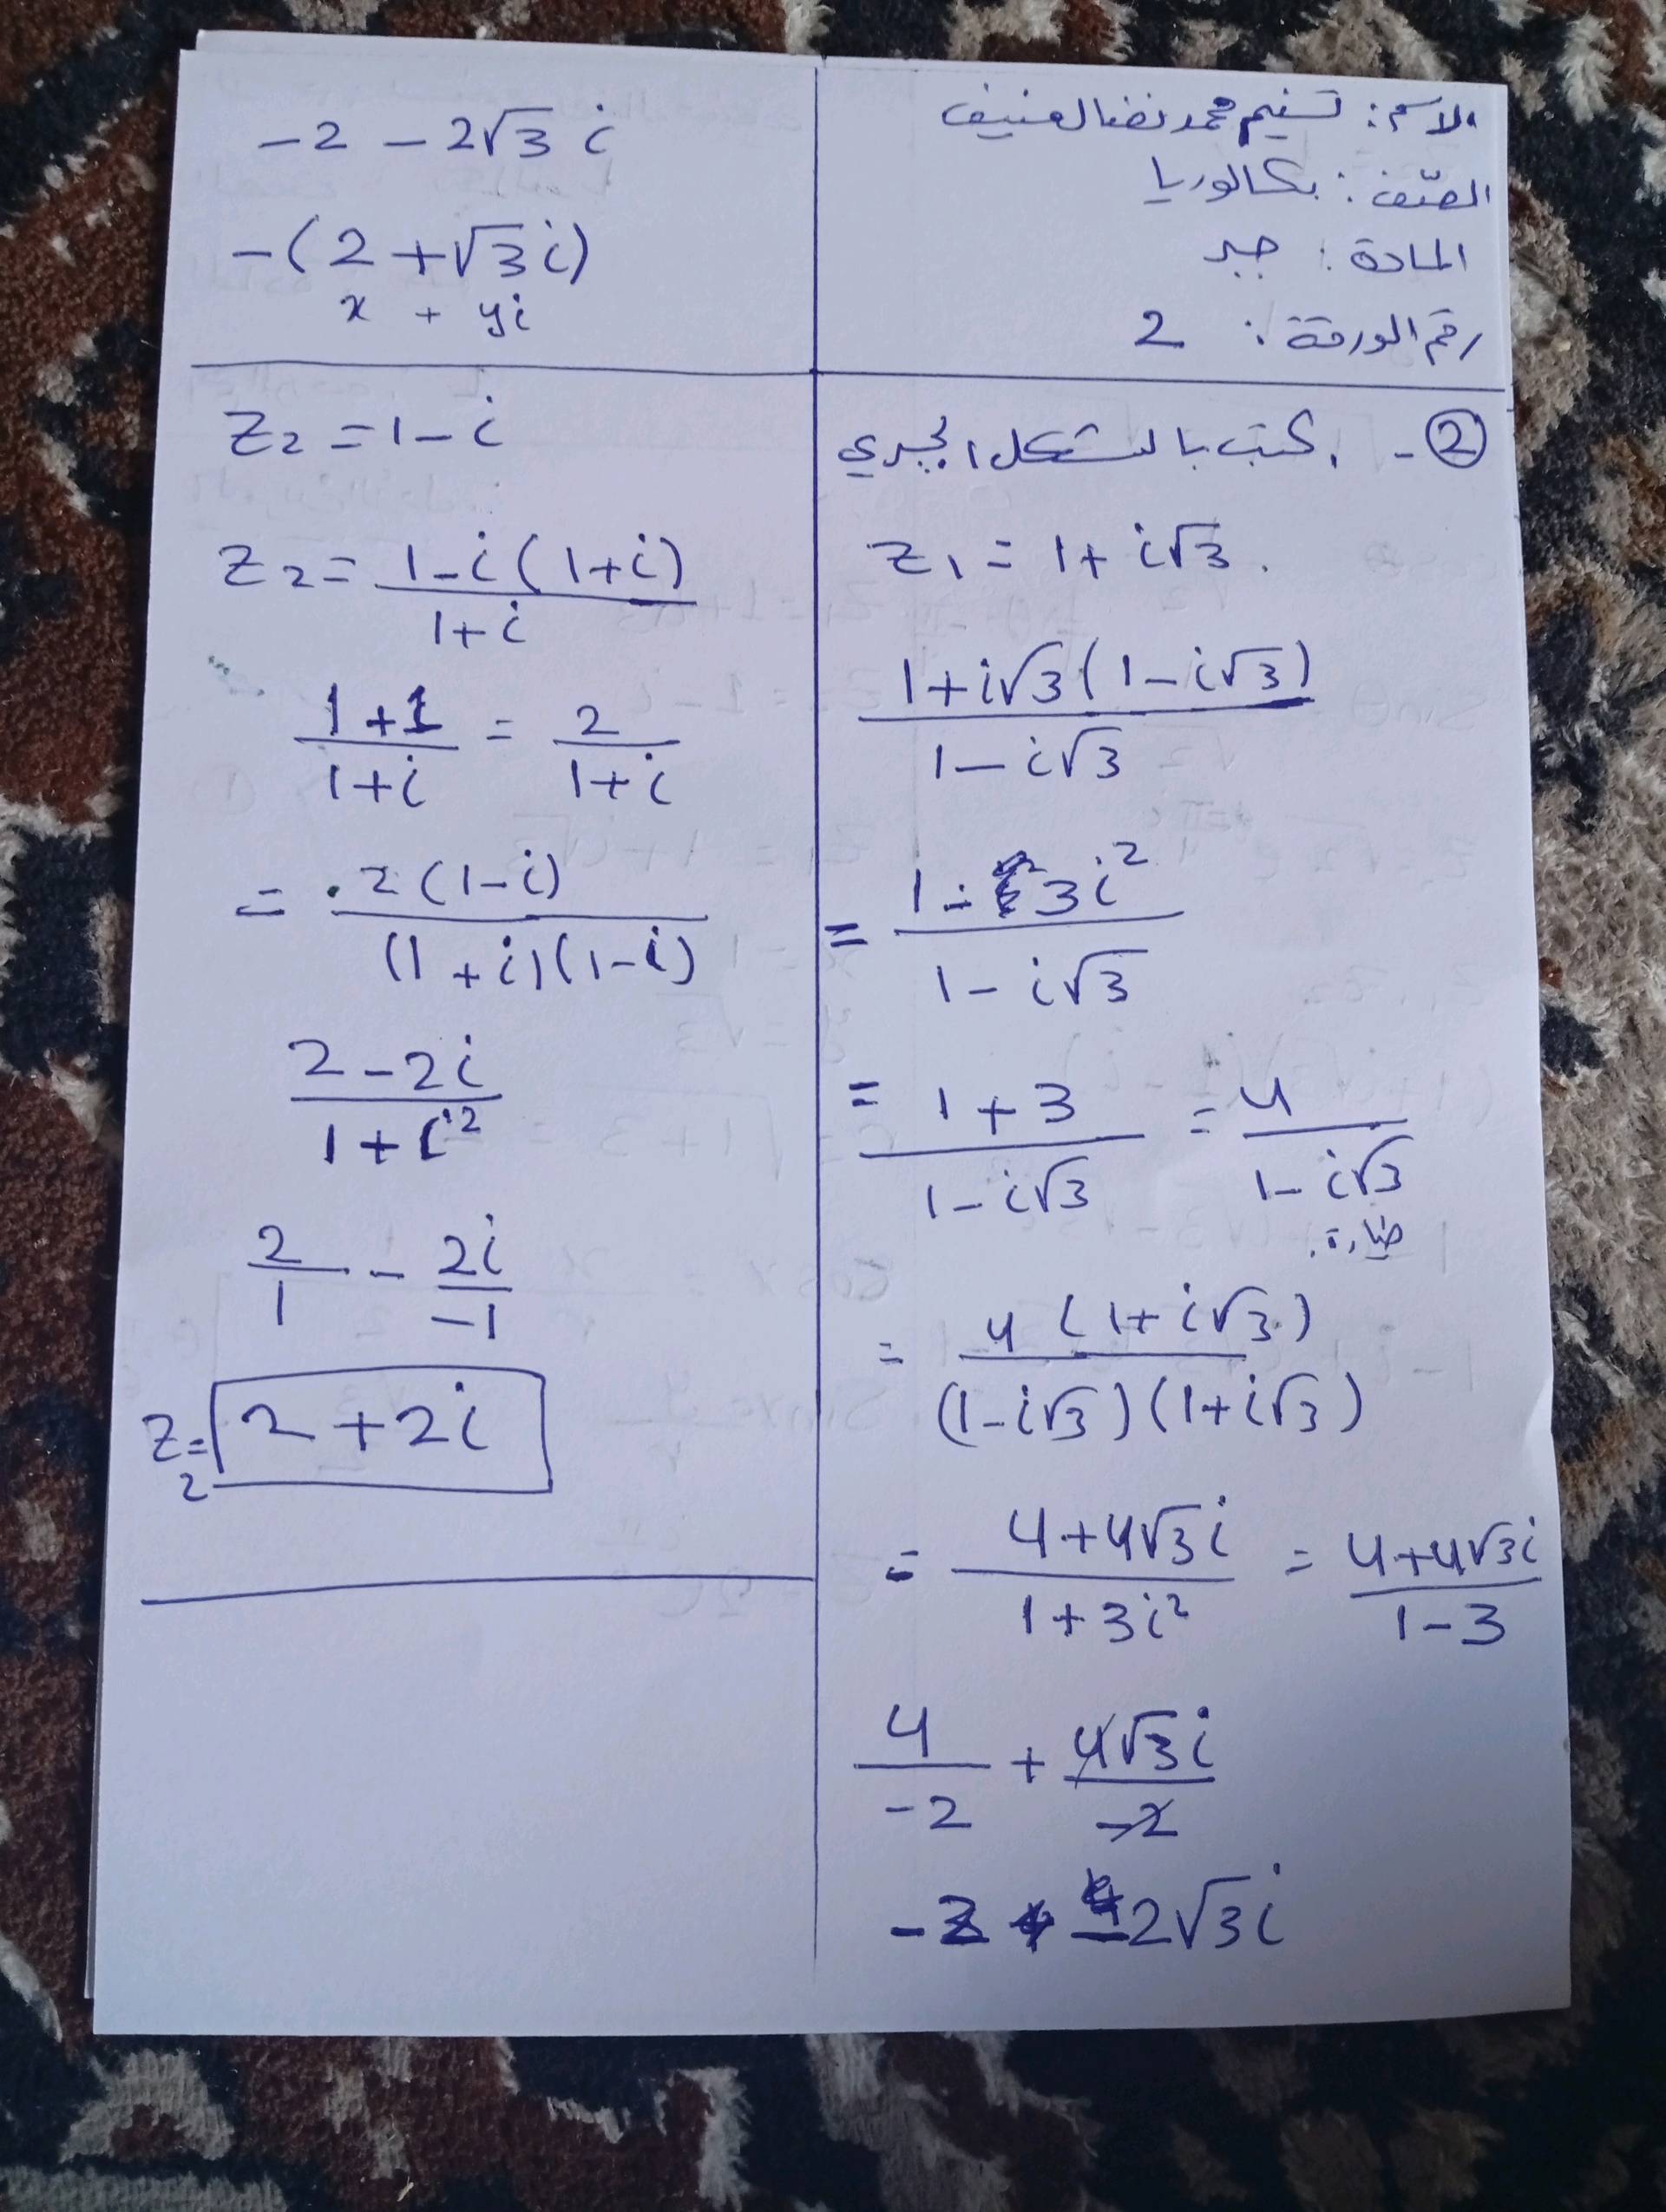 الاسم: تسنيم محمد نضال عفيف
الصّف: بكالوريا
المادة: جبر
رقم الورقة: 2
② - اكتب بالشكل الجبري
z₁ = 1 + i√3.
1+i√3(1-i√3) / 1-i√3
= 1-3i² / 1-i√3
= 1+3 / 1-i√3 = 4 / 1-i√3
= 4(1+i√3) / (1-i√3)(1+i√3)
= 4+4√3i / 1+3i² = 4+4√3i / 1-3
4/-2 + 4√3i/-2
-2 - 2√3i
-2 - 2√3 i
-(2 + √3 i)
x + yi
Z₂ = 1 - i
Z₂ = 1-i(1+i) / 1+i
1+1 / 1+i = 2 / 1+i
= 2(1-i) / (1+i)(1-i)
2-2i / 1+i²
2/1 - 2i/-1
Z₂ = 2+2i